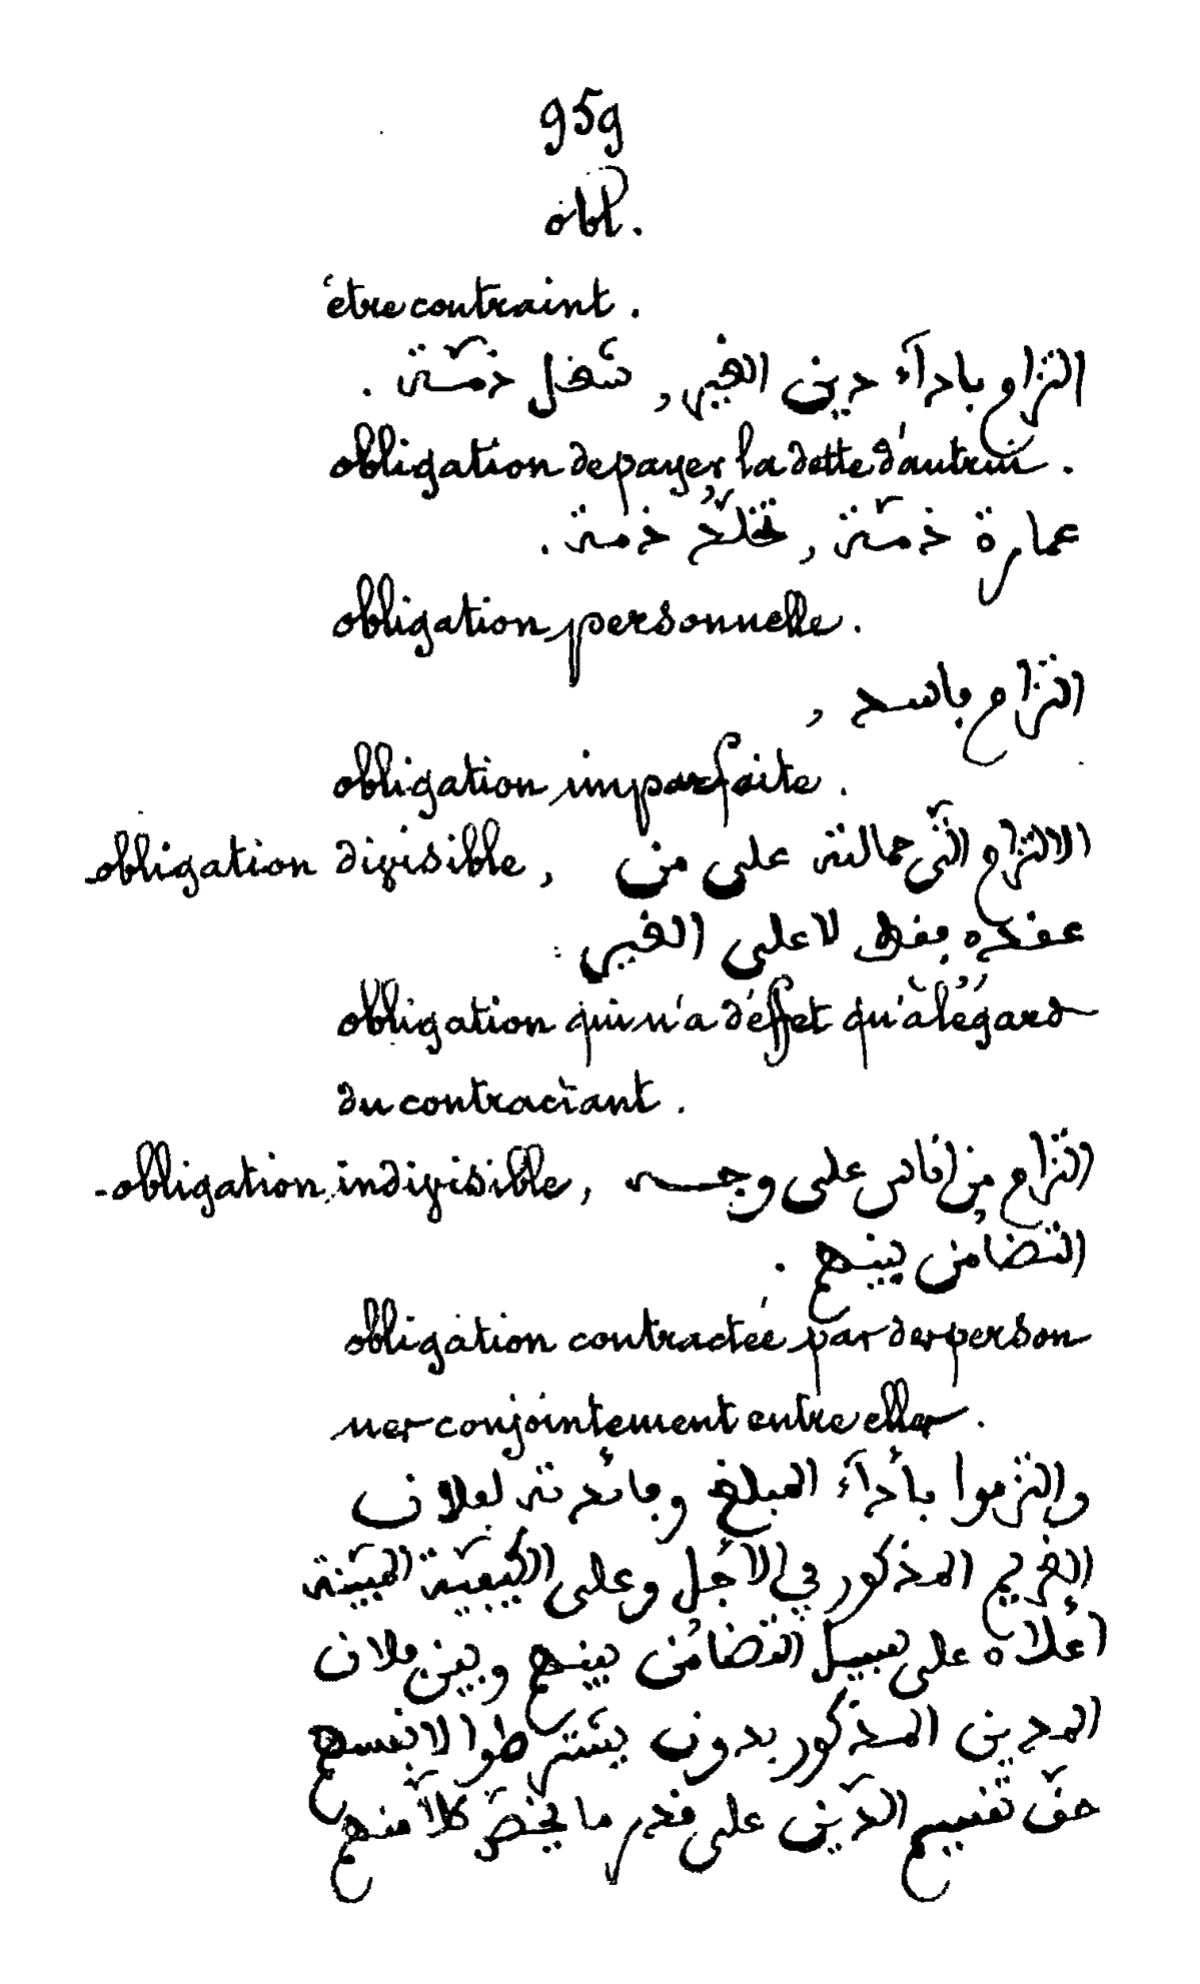 959
obl.
être contraint.
التزام بادآء دين الغير , شغل ذمّة .
obligation de payer la dette d'autrui.
عمارة ذمّة , تخلّد ذمة .
obligation personnelle.
التزام فاسد ,
obligation imparfaite.
obligation divisible, الالتزام الّتي حمالته على من
عقده فقط لا على الغير .
obligation qui n'a d'effet qu'à l'égard
du contractant.
-obligation indivisible, التزام من اناس على وجه
التضامن بينهم .
obligation contractée par des person
nes conjointement entre elles.
والتزموا بأدآء المبلغ وفائدته لفلان
الغريم المذكور في الأجل وعلى الكيفيّة المبيّنة
أعلاه على سبيل التضامن بينهم وبين فلان
المدين المذكور بدون يشترطوا لانفسهم
حقّ تقسيم الدّين على قدر ما يخصّ كلاّ منهم